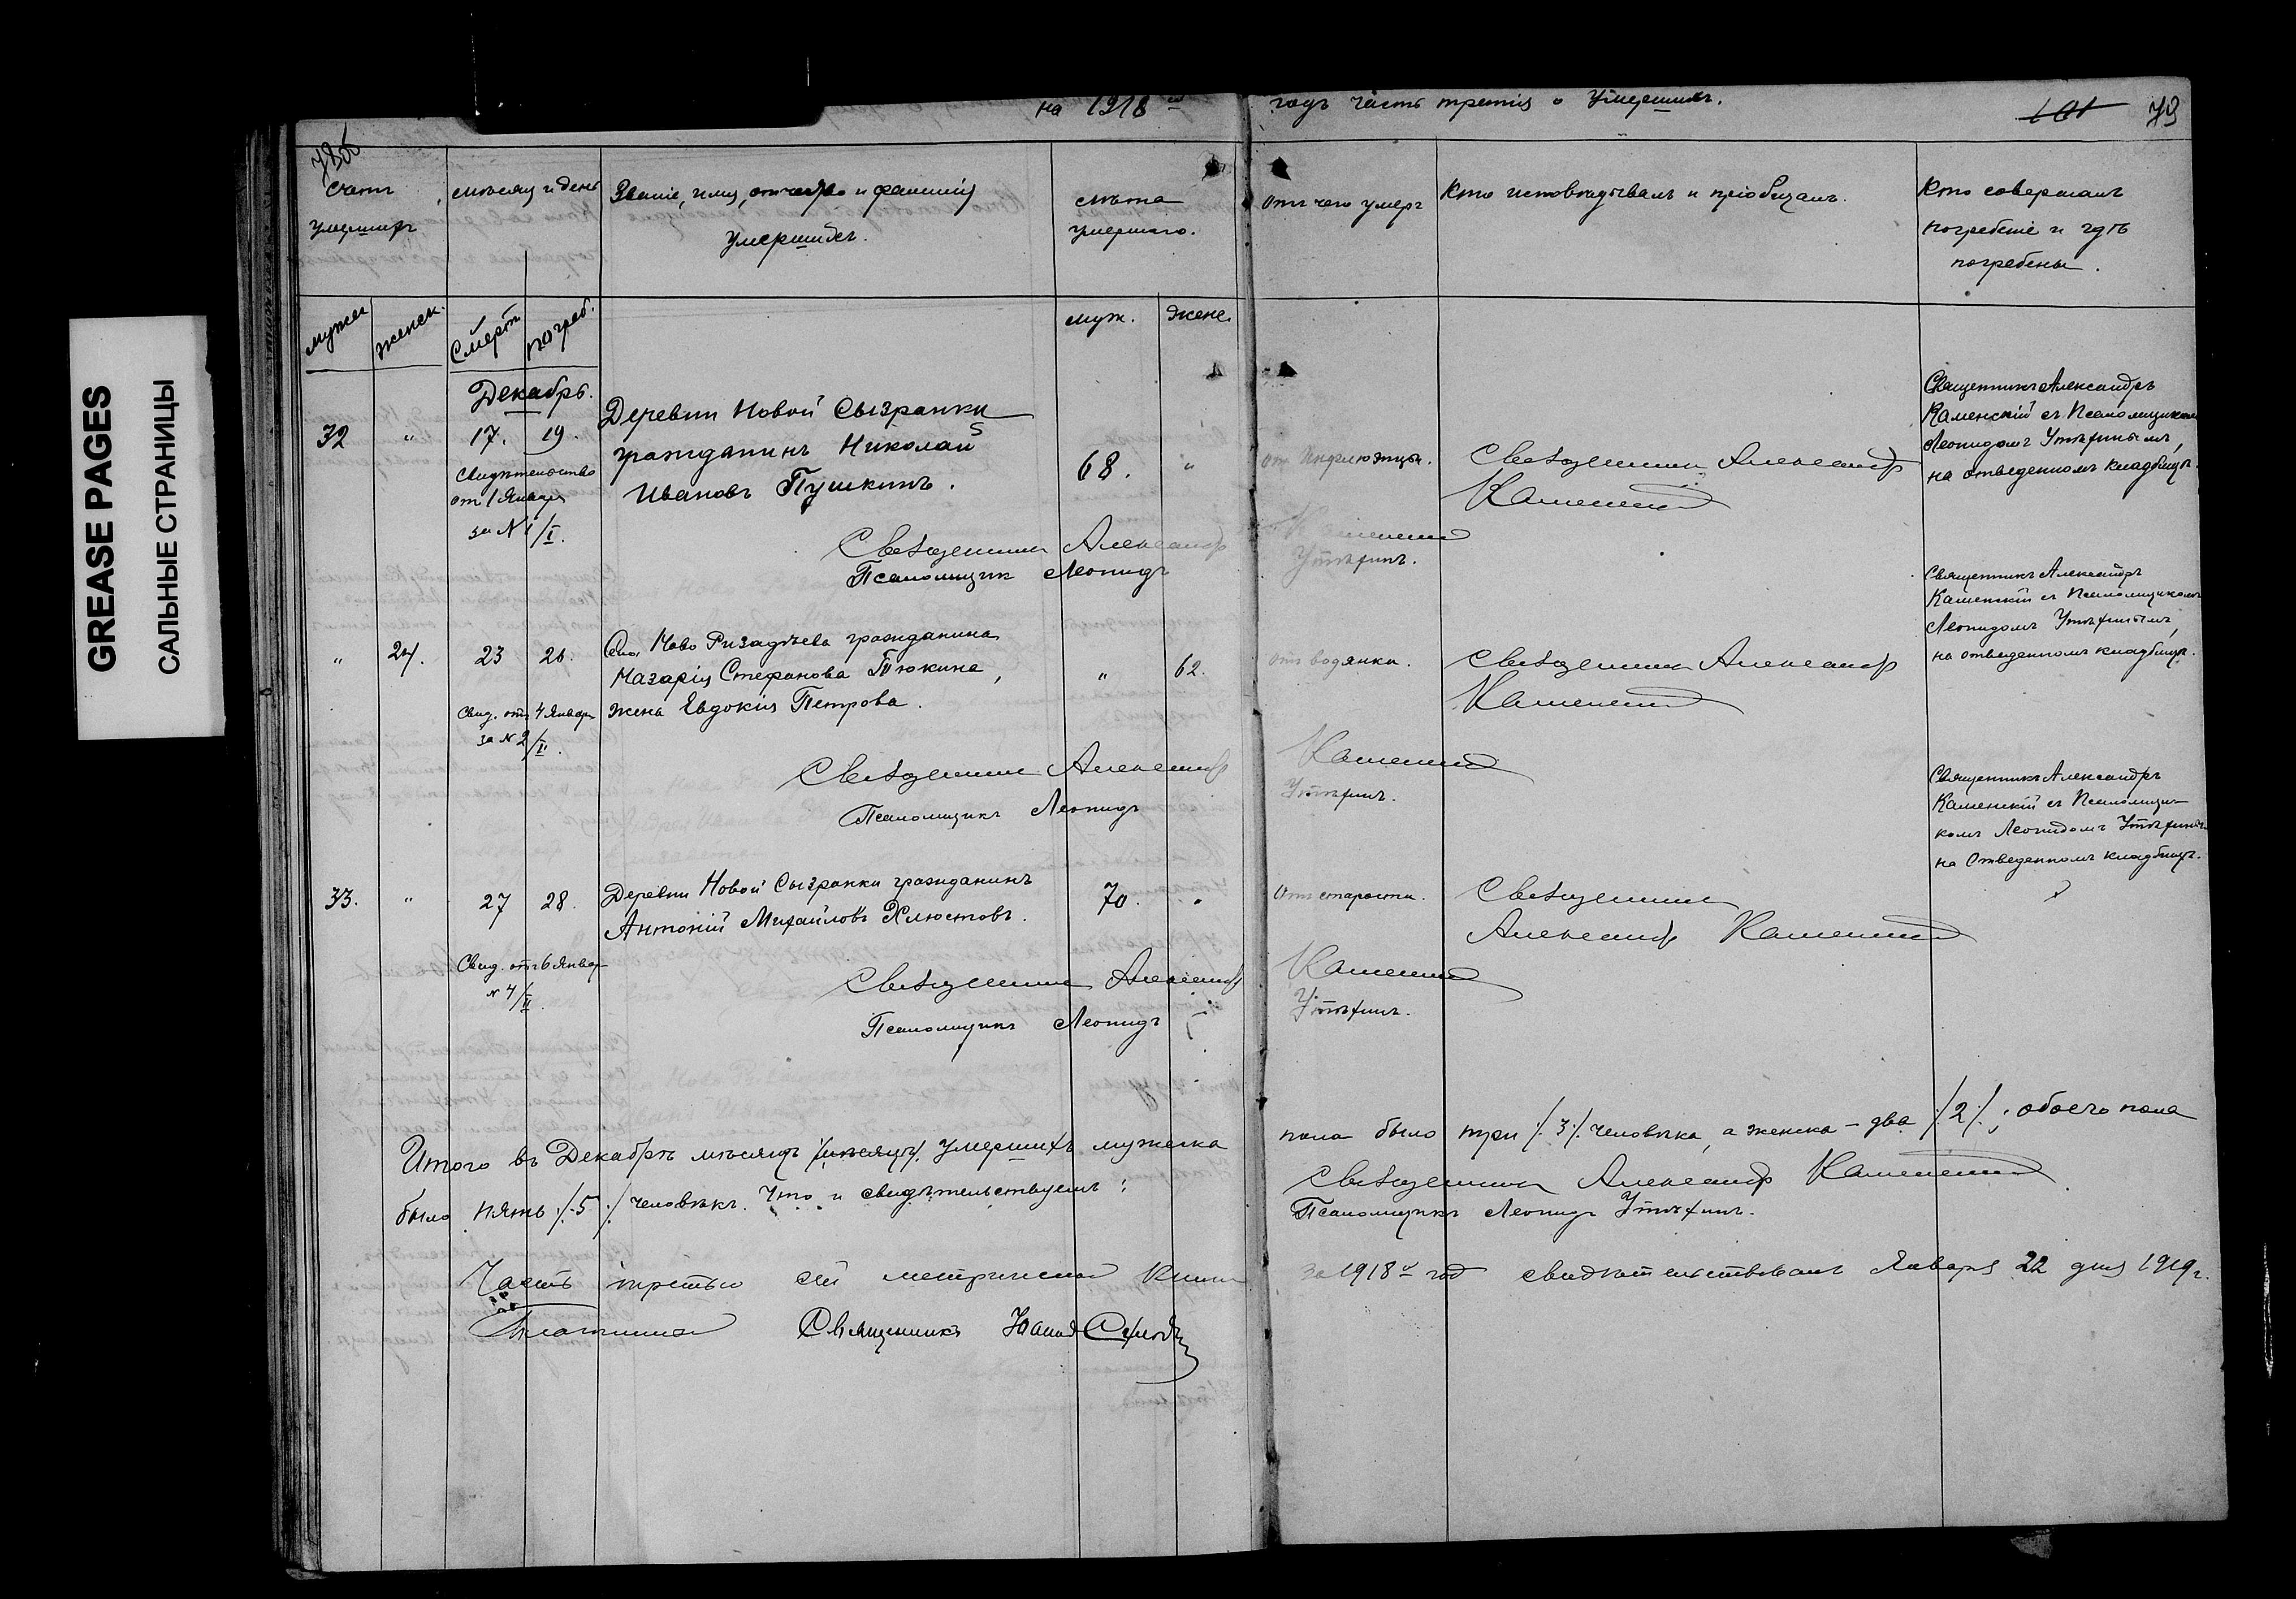 GREASE PAGES
САЛЬНЫЕ СТРАНИЦЫ
на 1918 й годъ часть третія о Умершихъ.
101 73
Счетъ умершихъ
мѣсяцъ и день
Званіе, имя, отчество и фамилія умершихъ.
лѣта умершаго.
Отъ чего умеръ
Кто исповѣдывалъ и пріобщалъ.
Кто совершалъ погребеніе и гдѣ погребены.
мужск
женск.
Смерт.
погреб.
муж.
женс.
Декабрь.
32 " 17. 19.
Деревни Новой Сызранки
гражданинъ Николай
Ивановъ Пушкинъ.
68. "
от Инфлюэнцы.
Священникъ Александръ
Каменскій
Священникъ Александръ
Каменскій съ Псаломщикомъ
Леонидомъ Утѣхинымъ,
на отведенномъ кладбищѣ.
Свидѣтельство
от 1 Января
за N 1/I.
Священникъ Александръ Каменскій
Псаломщик Леонидъ Утѣхинъ.
" 24. 23 26.
Сел. Ново Ризадѣева гражданина
Назарія Стефанова Тюкина,
жена Евдокія Петрова.
" 62.
отъ водянки.
Священникъ Александръ
Каменскій
Священникъ Александръ
Каменскій съ Псаломщикомъ
Леонидомъ Утѣхинымъ,
на отведенномъ кладбищѣ.
Свид. отъ 4 Января
за N 2/II.
Священникъ Александръ Каменскій
Псаломщикъ Леонидъ Утѣхинъ.
33. " 27 28.
Деревни Новой Сызранки гражданинъ
Антоній Михайловъ Хлюстовъ.
70. "
Отъ старости.
Священникъ
Александръ Каменскій
Священникъ Александръ
Каменскій съ Псаломщи-
комъ Леонидомъ Утѣхинымъ
на Отведенномъ кладбищѣ.
Свид. отъ 6 Январ
N 4/II.
Священникъ Александръ Каменскій
Псаломщикъ Леонидъ Утѣхинъ.
Итого въ Декабрѣ мѣсяцѣ /мѣсяцѣ/ умершихъ мужеска пола было три /.3./ человѣка, а женска - два /.2./; обоего пола
было пять /.5./ человѣкъ. Что и свидѣтельствуемъ:
Священникъ Александръ Каменскій
Псаломщикъ Леонидъ Утѣхинъ.
Часть третью сей метрической книги за 1918 й год свидѣтельствовалъ Января 22 дня 1919 г.
Священникъ